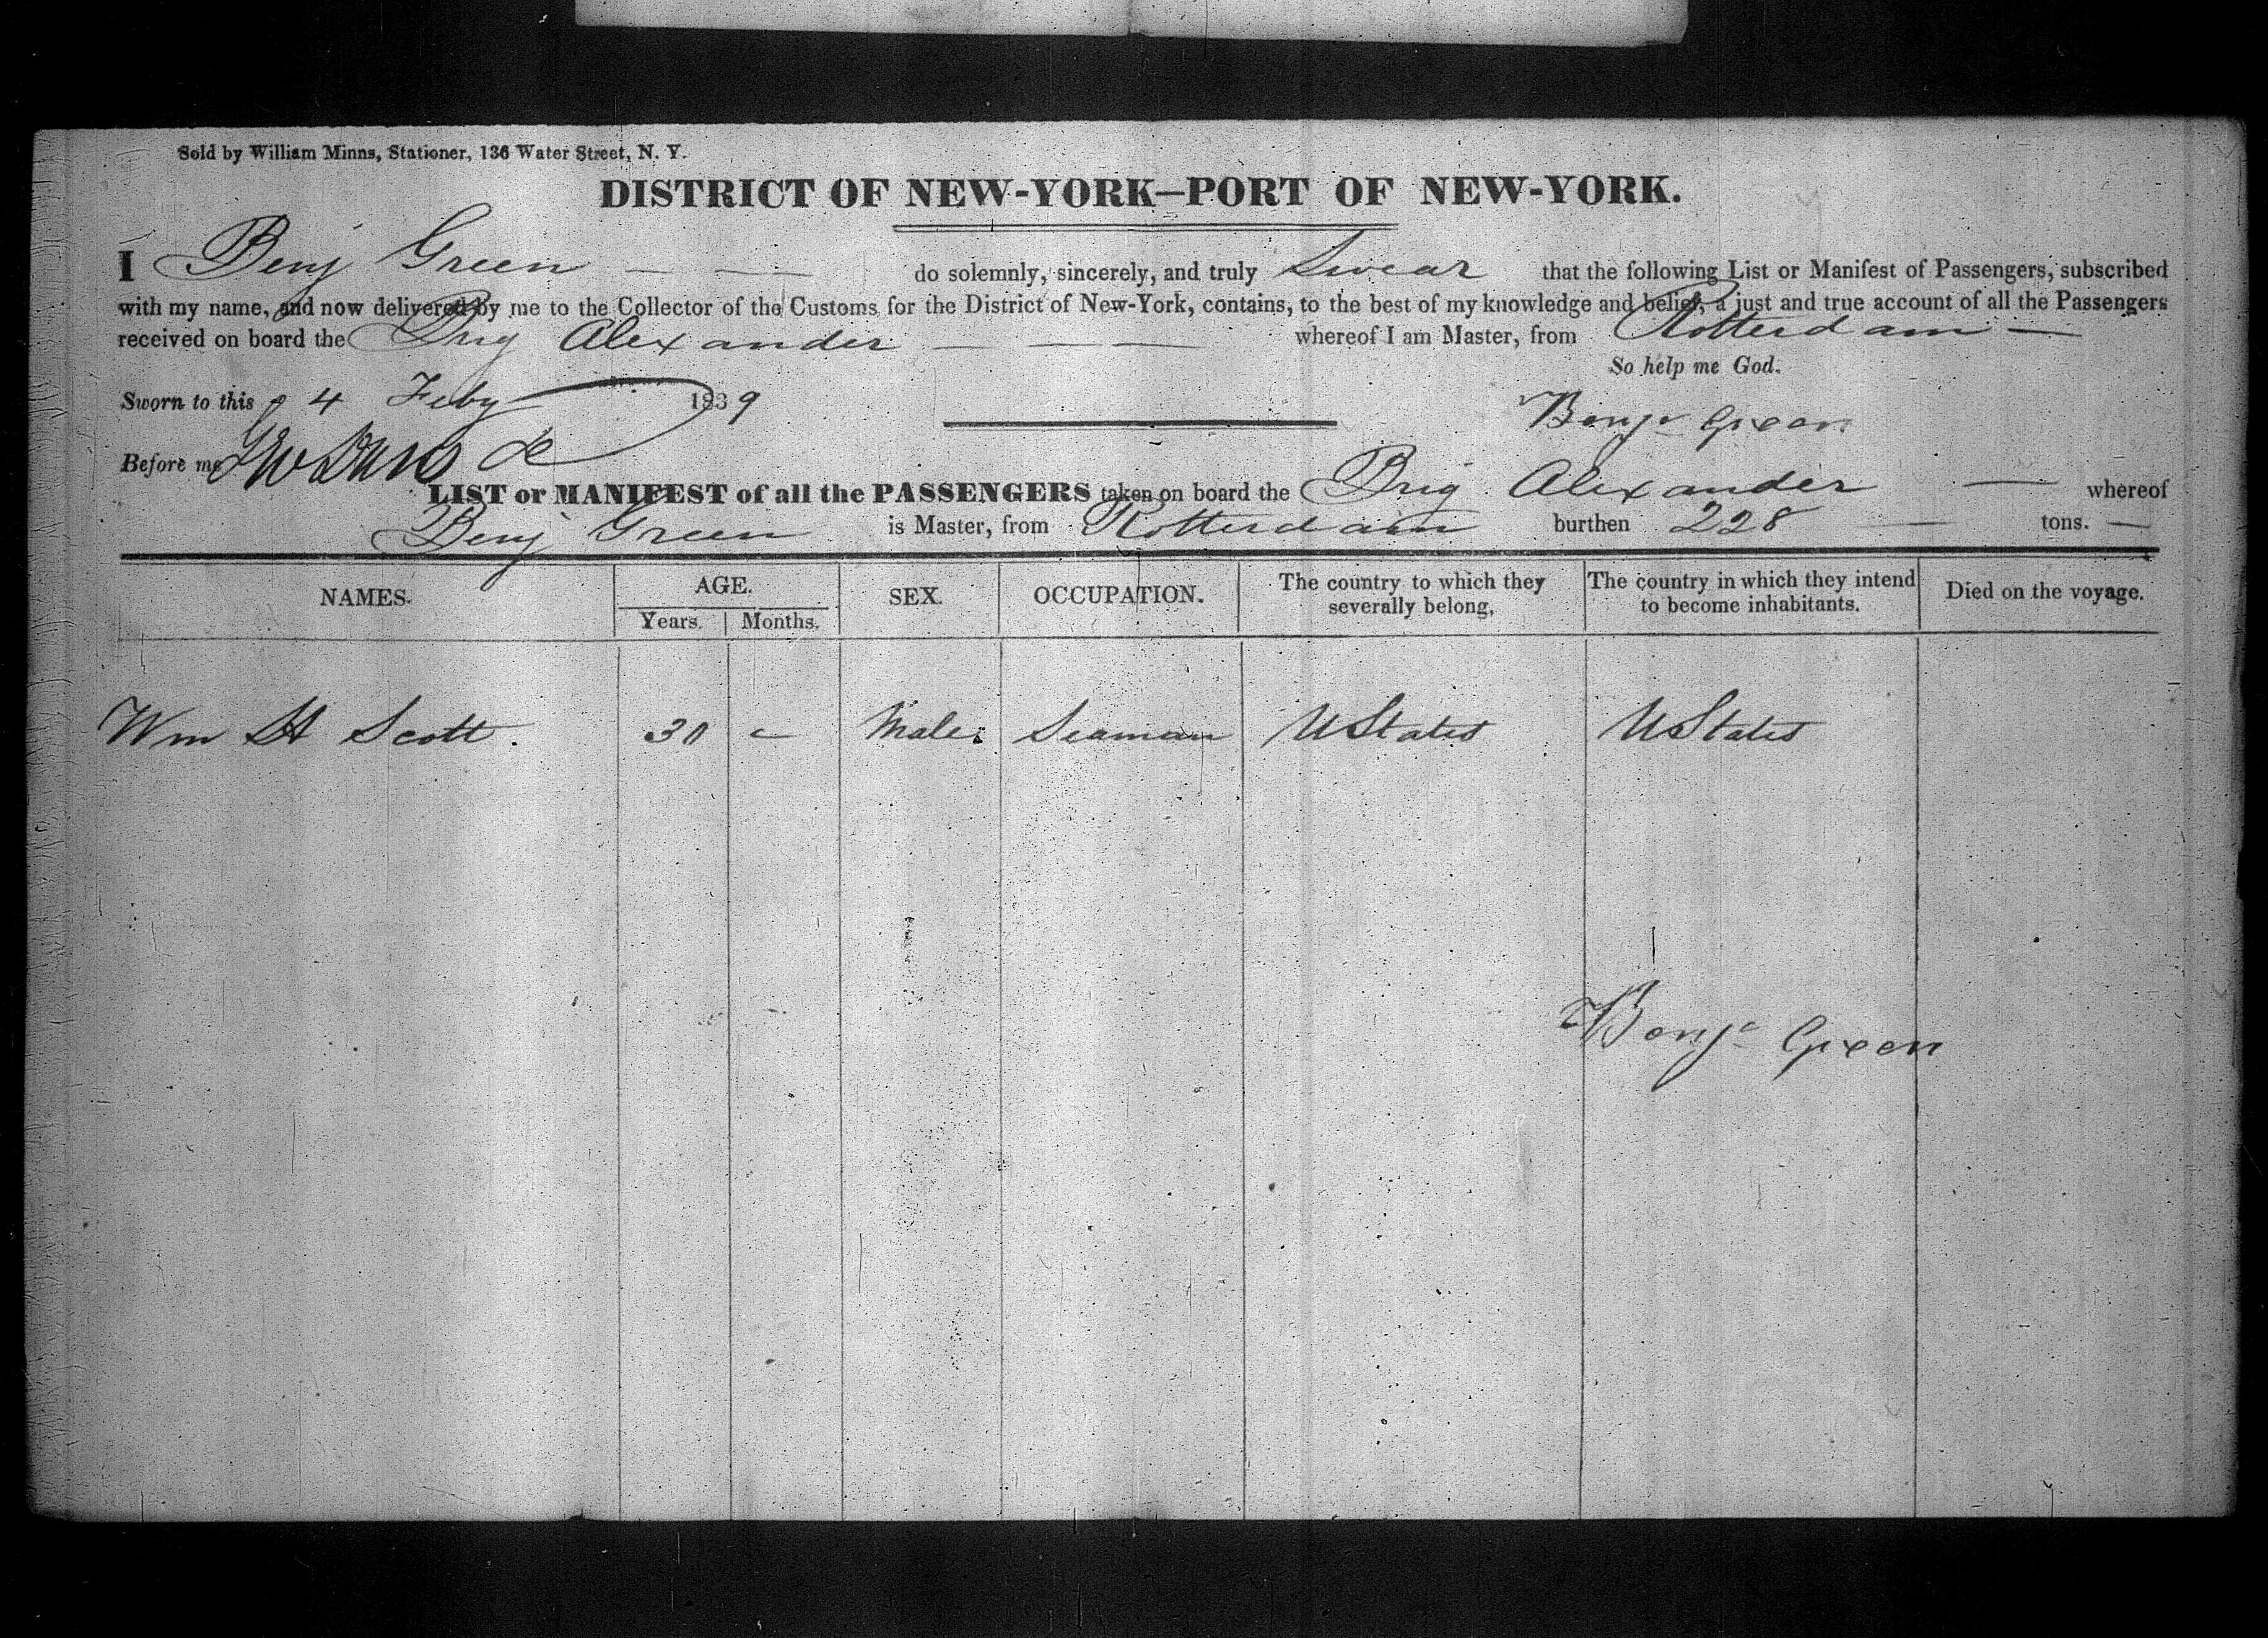 Sold by William Minns, Stationer, 136 Water Street, N. Y.
DISTRICT OF NEW-YORK—PORT OF NEW-YORK.
I Benj Green — — do solemnly, sincerely, and truly Swear that the following List or Manifest of Passengers, subscribed
with my name, and now delivered by me to the Collector of the Customs for the District of New-York, contains, to the best of my knowledge and belief, a just and true account of all the Passengers
received on board the Brig Alexander — — — whereof I am Master, from Rotterdam —
So help me God.
Sworn to this 4 Feby 1839
Benjn Green
Before me
LIST or MANIFEST of all the PASSENGERS taken on board the Brig Alexander — whereof
Benj Green is Master, from Rotterdam burthen 228 — tons. —
NAMES. AGE. SEX. OCCUPATION. The country to which they severally belong, The country in which they intend to become inhabitants. Died on the voyage.
Years. Months.
Wm H Scott. 30 – Male Seaman UStates UStates
Benjn Green